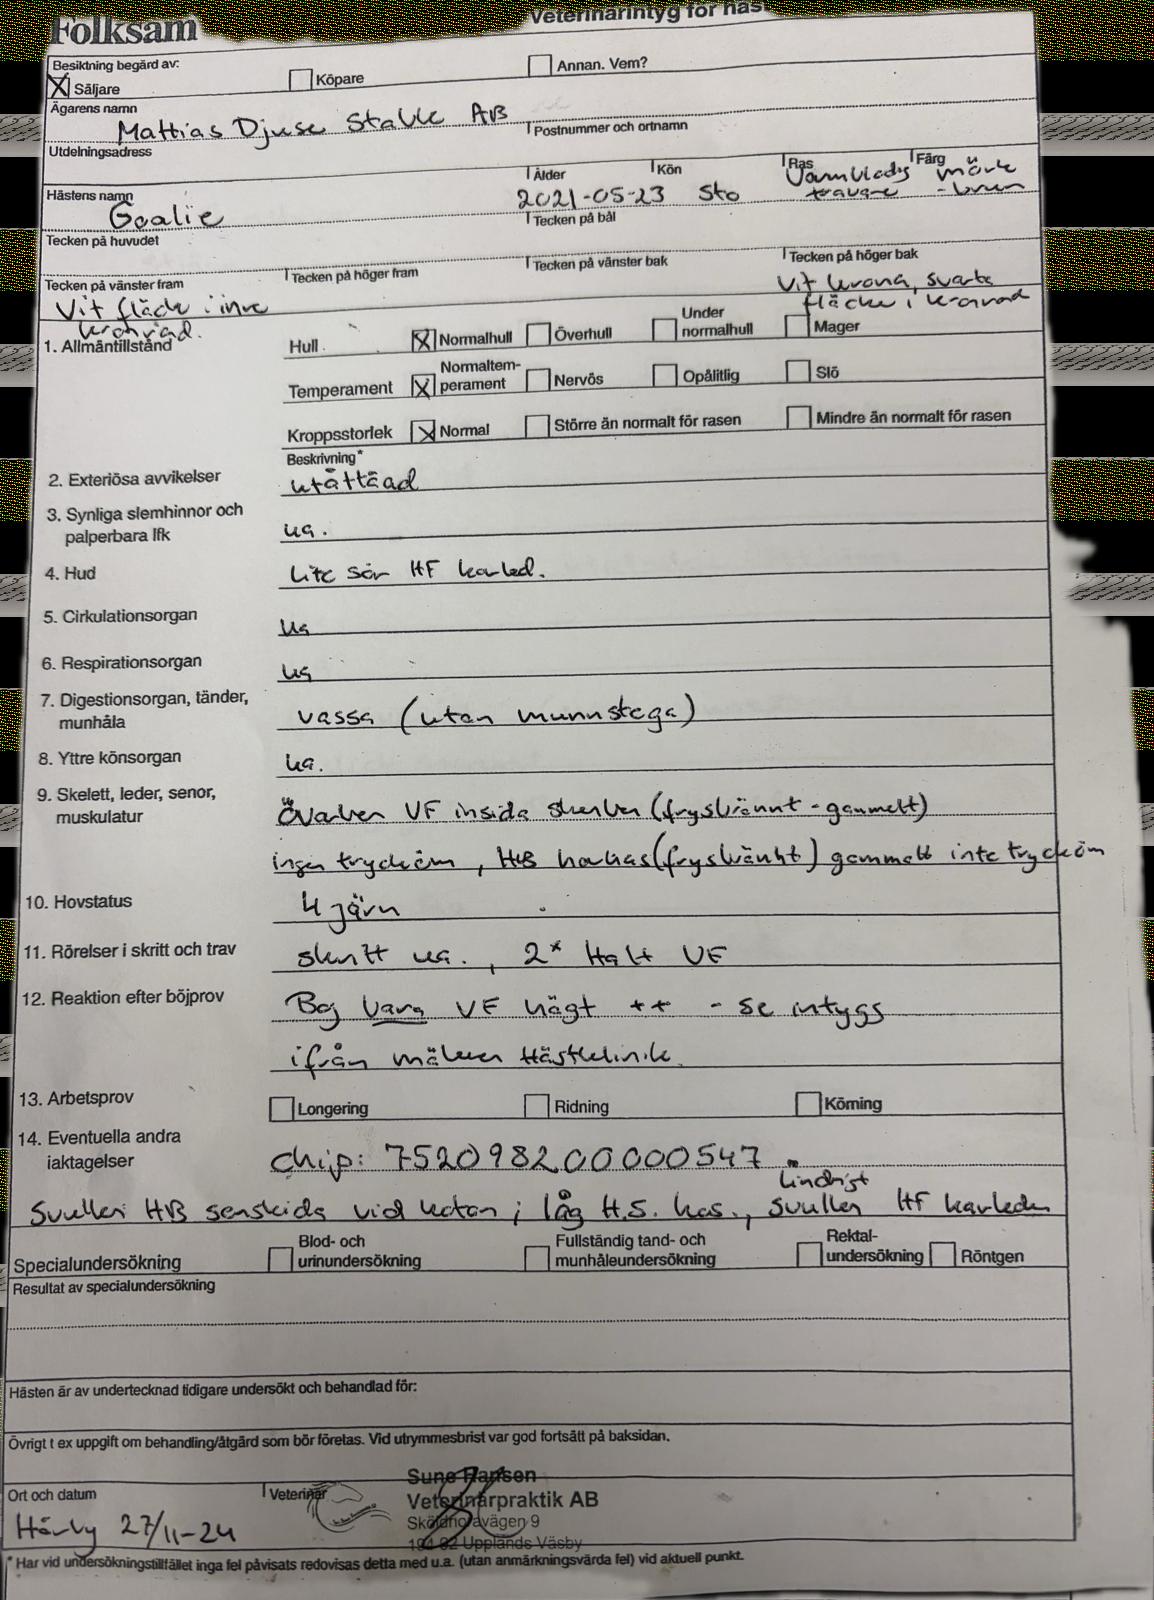 Folksam
Veterinärintyg för häst
Besiktning begärd av:
X Säljare
Köpare
Annan. Vem?
Ägarens namn
Mattias Djuse Stall AB
Utdelningsadress
Postnummer och ortnamn
Hästens namn
Goalie
Ålder
2021-05-23
Kön
Sto
Ras
Varmblodig travare
Färg
mörk-brun
Tecken på huvudet
Tecken på bål
Tecken på vänster fram
Vit fläck i inre kronrad.
Tecken på höger fram
Tecken på vänster bak
Tecken på höger bak
Vit krona, svarta fläckar i kronrad
1. Allmäntillstånd
Hull X Normalhull Överhull Under normalhull Mager
Temperament X Normaltemperament Nervös Opålitlig Slö
Kroppsstorlek X Normal Större än normalt för rasen Mindre än normalt för rasen
Beskrivning*
2. Exteriösa avvikelser utåttåad
3. Synliga slemhinnor och palperbara lfk ua.
4. Hud Lite sår HF karled.
5. Cirkulationsorgan ua
6. Respirationsorgan ua
7. Digestionsorgan, tänder, munhåla vassa (utan munnstega)
8. Yttre könsorgan ua.
9. Skelett, leder, senor, muskulatur Överben VF insida skenben (frysbrännt - gammalt)
ingen trycköm, HB harhas (frysbränt) gammalt inte trycköm
10. Hovstatus 4 järn
11. Rörelser i skritt och trav skritt ua., 2* Halt VF
12. Reaktion efter böjprov Böj Vara VF högt ++ - se intygs
ifrån mälaren Hästklinik.
13. Arbetsprov Longering Ridning Körning
14. Eventuella andra iaktagelser chip: 752098200000547
Svullen HB senskida vid kotan; låg H.S. has., Lindrigt svullen HF karleden
Specialundersökning Blod- och urinundersökning Fullständig tand- och munhåleundersökning Rektalundersökning Röntgen
Resultat av specialundersökning
Hästen är av undertecknad tidigare undersökt och behandlad för:
Övrigt t ex uppgift om behandling/åtgärd som bör företas. Vid utrymmesbrist var god fortsätt på baksidan.
Ort och datum
Härby 27/11-24
Veterinär
Sune Hansen
Veterinärpraktik AB
Sköldnoravägen 9
194 92 Upplands Väsby
* Har vid undersökningstillfället inga fel påvisats redovisas detta med u.a. (utan anmärkningsvärda fel) vid aktuell punkt.